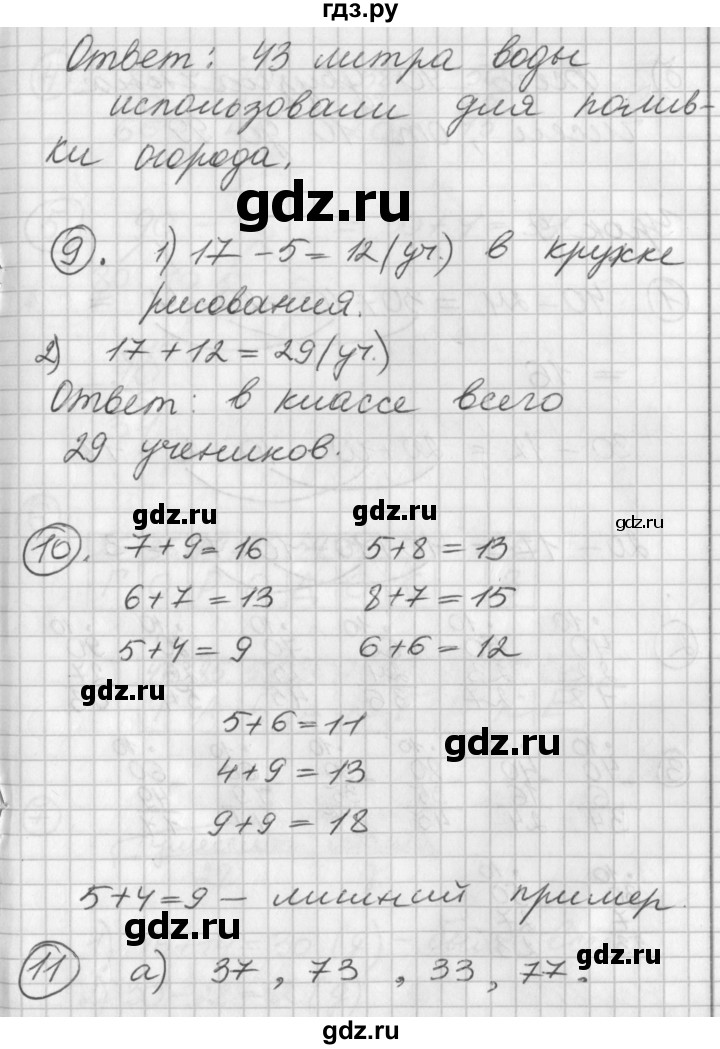 гдз.ру
Ответ: 43 литра воды
использовали для полив-
ки огорода.
gdz.ru
9. 1) 17 - 5 = 12 (уч.) в кружке
рисования.
2) 17 + 12 = 29 (уч.)
Ответ: в классе всего
29 учеников.
gdz.ru gdz.ru gdz.ru
10. 7 + 9 = 16 5 + 8 = 13
6 + 7 = 13 8 + 7 = 15
5 + 4 = 9 6 + 6 = 12
gdz.ru
5 + 6 = 11
gdz.ru
4 + 9 = 13
9 + 9 = 18
5 + 4 = 9 – лишний пример.
gdz.ru
11 а) 37, 73, 33, 77.
gdz.ru
gdz.ru